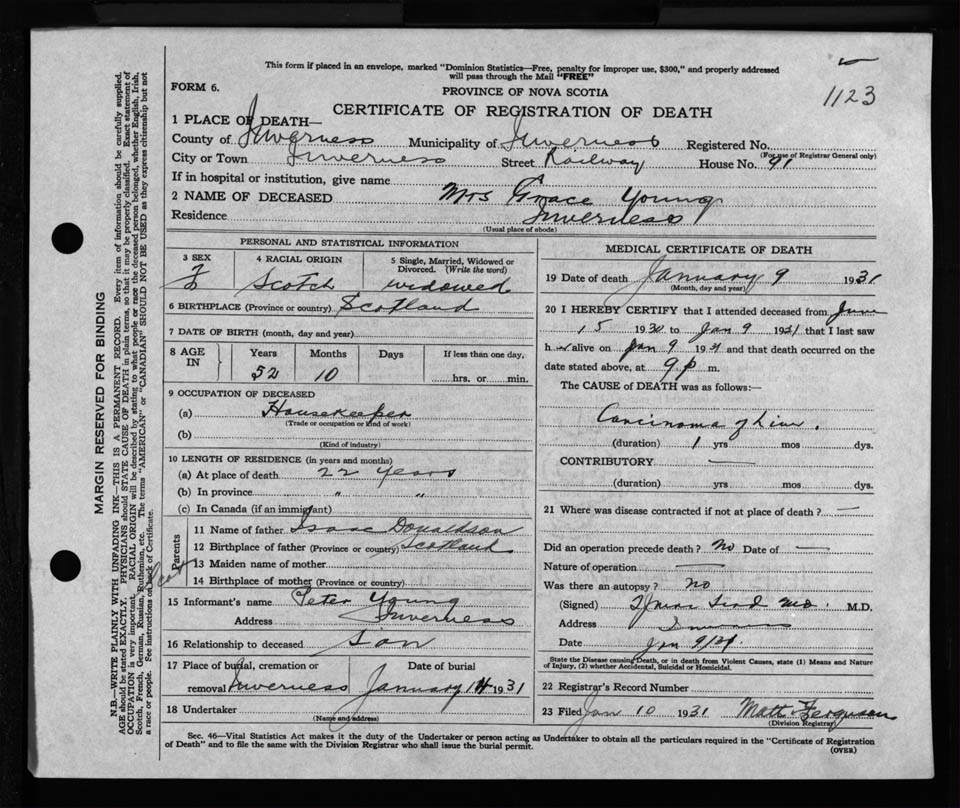 This form if placed in an envelope, marked "Dominion Statistics—Free, penalty for improper use, $300," and properly addressed
will pass through the Mail "FREE"
1123
FORM 6.
PROVINCE OF NOVA SCOTIA
CERTIFICATE OF REGISTRATION OF DEATH
1 PLACE OF DEATH—
County of Inverness Municipality of Inverness Registered No.
(For use of Registrar General only)
City or Town Inverness Street Railway House No. 91
If in hospital or institution, give name
2 NAME OF DECEASED Mrs Grace Young
Residence Inverness
(Usual place of abode)
PERSONAL AND STATISTICAL INFORMATION
3 SEX 4 RACIAL ORIGIN 5 Single, Married, Widowed or Divorced. (Write the word)
F Scotch widowed
6 BIRTHPLACE (Province or country) Scotland
7 DATE OF BIRTH (month, day and year)
8 AGE IN Years Months Days If less than one day,
52 10 hrs. or min.
9 OCCUPATION OF DECEASED
(a) Housekeeper
(Trade or occupation or kind of work)
(b)
(Kind of industry)
10 LENGTH OF RESIDENCE (in years and months)
(a) At place of death 22 Years
(b) In province " "
(c) In Canada (if an immigrant)
Parents
11 Name of father Isaac Donaldson
12 Birthplace of father (Province or country) Scotland
13 Maiden name of mother
14 Birthplace of mother (Province or country)
15 Informant's name Peter Young
Address Inverness
16 Relationship to deceased Son
17 Place of burial, cremation or removal Inverness Date of burial January 14 1931
18 Undertaker
(Name and address)
MEDICAL CERTIFICATE OF DEATH
19 Date of death January 9 1931
(Month, day and year)
20 I HEREBY CERTIFY that I attended deceased from June
15 1930 to Jan 9 1931 that I last saw
h er alive on Jan 9 1931 and that death occurred on the
date stated above, at 9 p m.
The CAUSE of DEATH was as follows:—
Carcinoma of Liver.
(duration) 1 yrs mos dys.
CONTRIBUTORY —
(duration) yrs mos dys.
21 Where was disease contracted if not at place of death? —
Did an operation precede death? No Date of —
Nature of operation —
Was there an autopsy? No
(Signed) M.D. M.D.
Address Inverness
Date Jan 9/31.
State the Disease causing Death, or in death from Violent Causes, state (1) Means and Nature
of Injury, (2) whether Accidental, Suicidal or Homicidal.
22 Registrar's Record Number
23 Filed Jan 10 1931 Matt Ferguson
(Division Registrar)
Sec. 46—Vital Statistics Act makes it the duty of the Undertaker or person acting as Undertaker to obtain all the particulars required in the "Certificate of Registration
of Death" and to file the same with the Division Registrar who shall issue the burial permit.
(OVER)
MARGIN RESERVED FOR BINDING
N.B.—WRITE PLAINLY WITH UNFADING INK—THIS IS A PERMANENT RECORD. Every item of information should be carefully supplied.
AGE should be stated EXACTLY. PHYSICIANS should STATE CAUSE OF DEATH in plain terms, so that it may be properly classified. Exact statement of
OCCUPATION is very important. RACIAL ORIGIN will be described by stating to what people or race the deceased person belonged, whether English, Irish,
Scotch, French, German, Russian, Ruthenian, etc. The terms "AMERICAN" or "CANADIAN" SHOULD NOT BE USED as they express citizenship but not
a race or people. See instructions on back of Certificate.